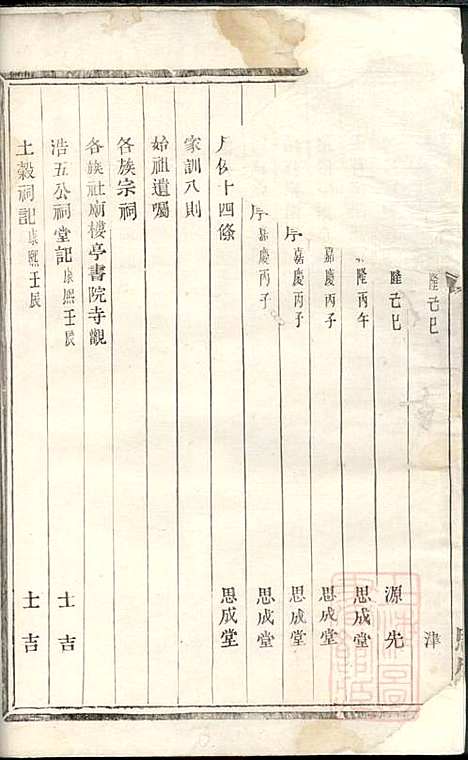 隆己巳 津
隆己巳 源先
隆丙午 思成堂
嘉慶丙子 思成堂
序 嘉慶丙子 思成堂
序 嘉慶丙子 思成堂
凡例十四條 思成堂
家訓八則
始祖遺囑
各族宗祠
各族社廟樓亭書院寺觀
浩五公祠堂記 康熙壬辰 士吉
土穀祠記 康熙壬辰 士吉